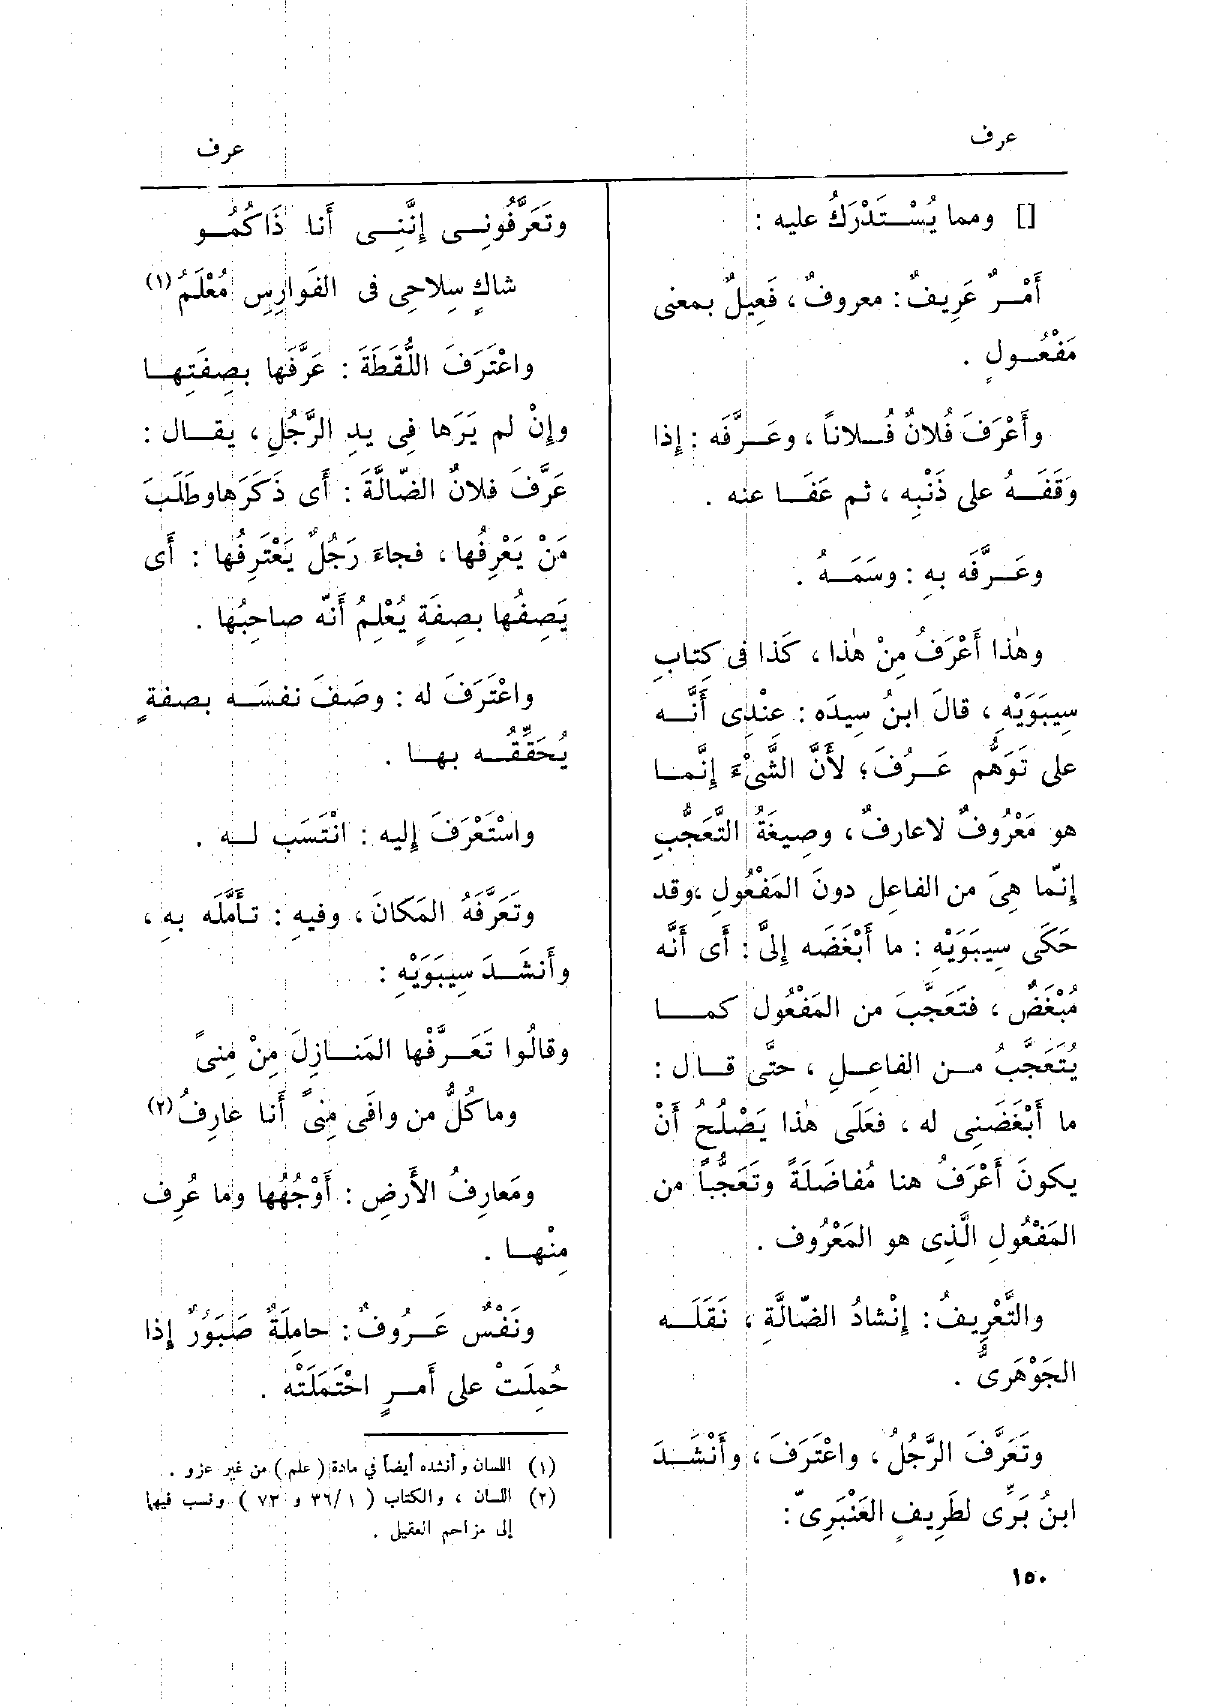 عرف
عرف
[] ومما يُسْتَدْرَكُ عليه :
أَمْرٌ عَرِيفٌ : معروفٌ ، فَعِيلٌ بمعنى
مَفْعُولٍ .
وأَعْرَفَ فُلانٌ فُلاناً ، وعَرَّفَه : إذا
وَقَفَهُ على ذَنْبِه ، ثم عَفَا عنه .
وعَرَّفَه بِهِ : وسَمَهُ .
وهٰذا أَعْرَفُ مِنْ هٰذا ، كَذا فى كِتابِ
سِيبَوَيْهِ ، قالَ ابنُ سِيدَه : عِنْدِى أَنَّه
على تَوَهُّمِ عَرُفَ ؛ لأَنَّ الشَّىْءَ إِنَّما
هو مَعْرُوفٌ لاعارِفٌ ، وصِيغَةُ التَّعَجُّبِ
إِنّما هِىَ من الفاعِلِ دونَ المَفْعُولِ ،وقد
حَكَى سِيبَوَيْهِ : ما أَبْغَضَه إِلىَّ : أَى أَنَّه
مُبْغَضٌ ، فتَعَجَّبَ من المَفْعُولِ كما
يُتَعَجَّبُ من الفاعِلِ ، حتَّى قال :
ما أَبْغَضَنِى له ، فعَلَى هٰذا يَصْلُحُ أَنْ
يكونَ أَعْرَفُ هنا مُفاضَلَةً وتَعَجُّباً من
المَفْعُولِ الَّذِى هو المَعْرُوف .
والتَّعْرِيفُ : إِنْشادُ الضّالَّةِ ، نَقَلَه
الجَوْهَرِىُّ .
وتَعَرَّفَ الرَّجُلُ ، واعْتَرَفَ ، وأَنْشَدَ
ابنُ بَرِّى لطَرِيفٍ العَنْبَرِىّ :
وتَعَرَّفُونِى إِنَّنِى أَنا ذَاكُمُو
شاكٍ سِلاحِى فى الفَوارِسِ مُعْلَمُ (١)
واعْتَرَفَ اللُّقَطَةَ : عَرَّفَها بصِفَتِها
وإِنْ لم يَرَها فِى يدِ الرَّجُلِ ، يقال :
عَرَّفَ فلانٌ الضّالَّةَ : أَى ذَكَرَهاوطَلَبَ
مَنْ يَعْرِفُها ، فجاءَ رَجُلٌ يَعْتَرِفُها : أَى
يَصِفُها بصِفَةٍ يُعْلِمُ أَنّه صاحِبُها .
واعْتَرَفَ له : وصَفَ نفسَه بصفةٍ
يُحَقِّقُه بها .
واسْتَعْرَفَ إِليه : انْتَسَب له .
وتَعَرَّفَهُ المَكانَ ، وفيهِ : تأَمَّلَه بهِ ،
وأَنشَدَ سِيبَوَيْهِ :
وقالُوا تَعَرَّفْها المَنازِلَ مِنْ مِنىً
وماكُلُّ من وافَى مِنىً أَنا عارِفُ (٢)
ومَعارِفُ الأَرضِ : أَوْجُهُها وما عُرِف
مِنْها .
ونَفْسٌ عَرُوفٌ : حامِلَةٌ صَبُورٌ إِذا
حُمِلَتْ على أَمرٍ احْتَمَلَتْه .
(١) اللسان وأنشده أيضاً في مادة ( علم ) من غير عزو .
(٢) اللسان ، والكتاب ( ٣٦/١ و ٧٣ ) ونسب فيها
إلى مزاحم العقيلى .
١٥٠